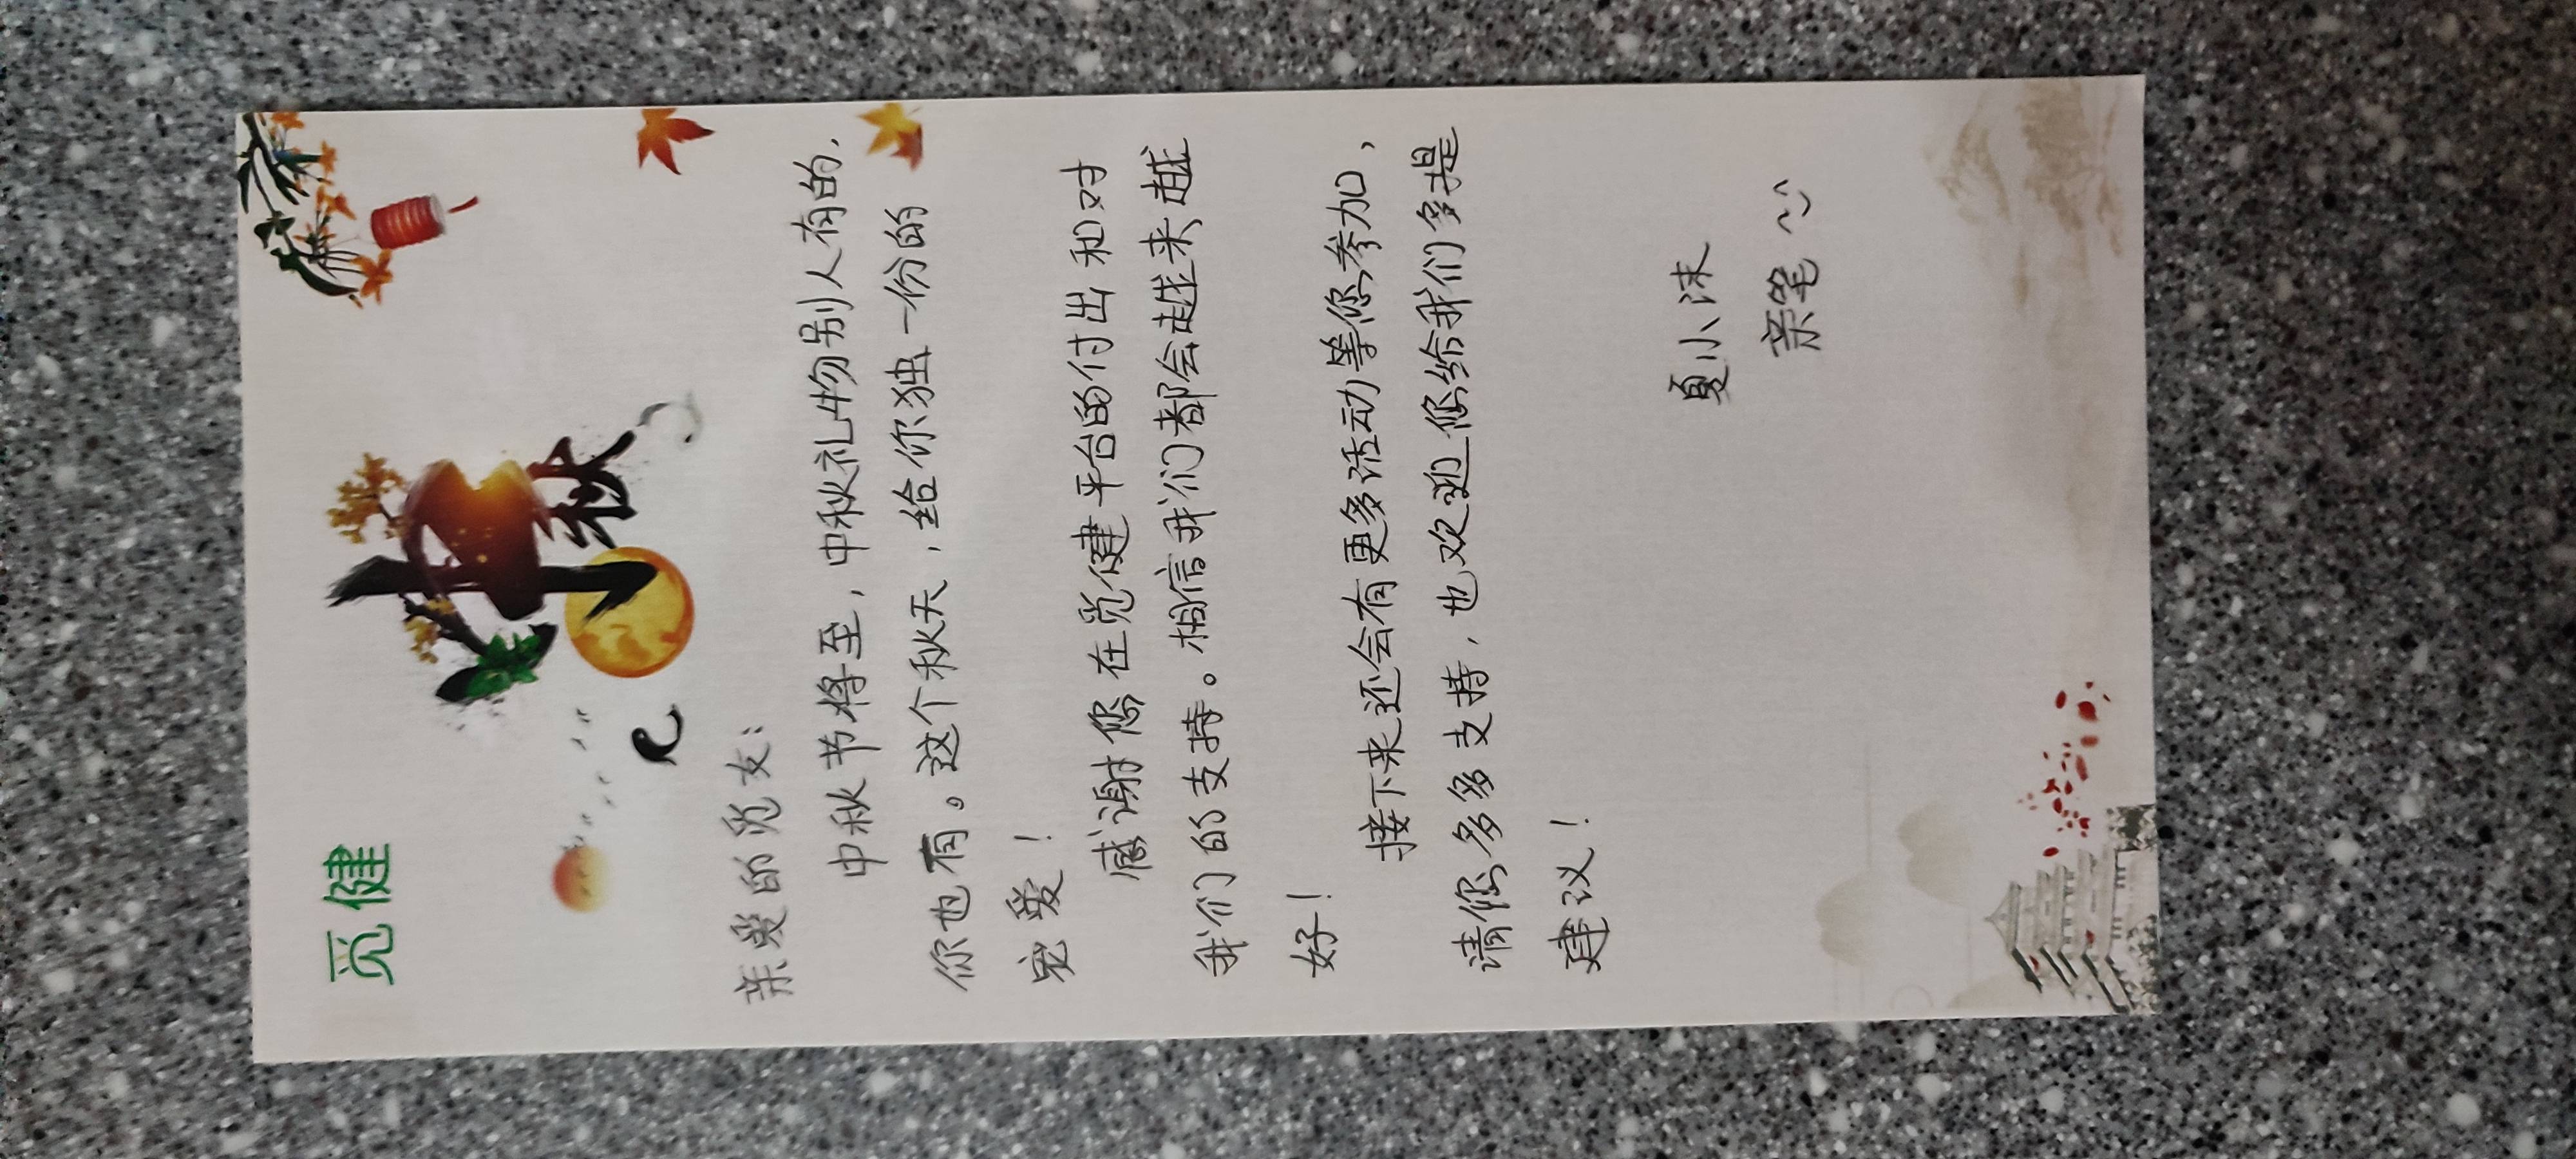 觅健
中秋
亲爱的觅友：
中秋节将至，中秋礼物别人有的，
你也有。这个秋天，给你独一份的
宠爱！
感谢您在觅健平台的付出和对
我们的支持。相信我们都会越来越
好！
接下来还会有更多活动等您参加，
请您多多支持，也欢迎您给我们多提
建议！
夏小沫
亲笔